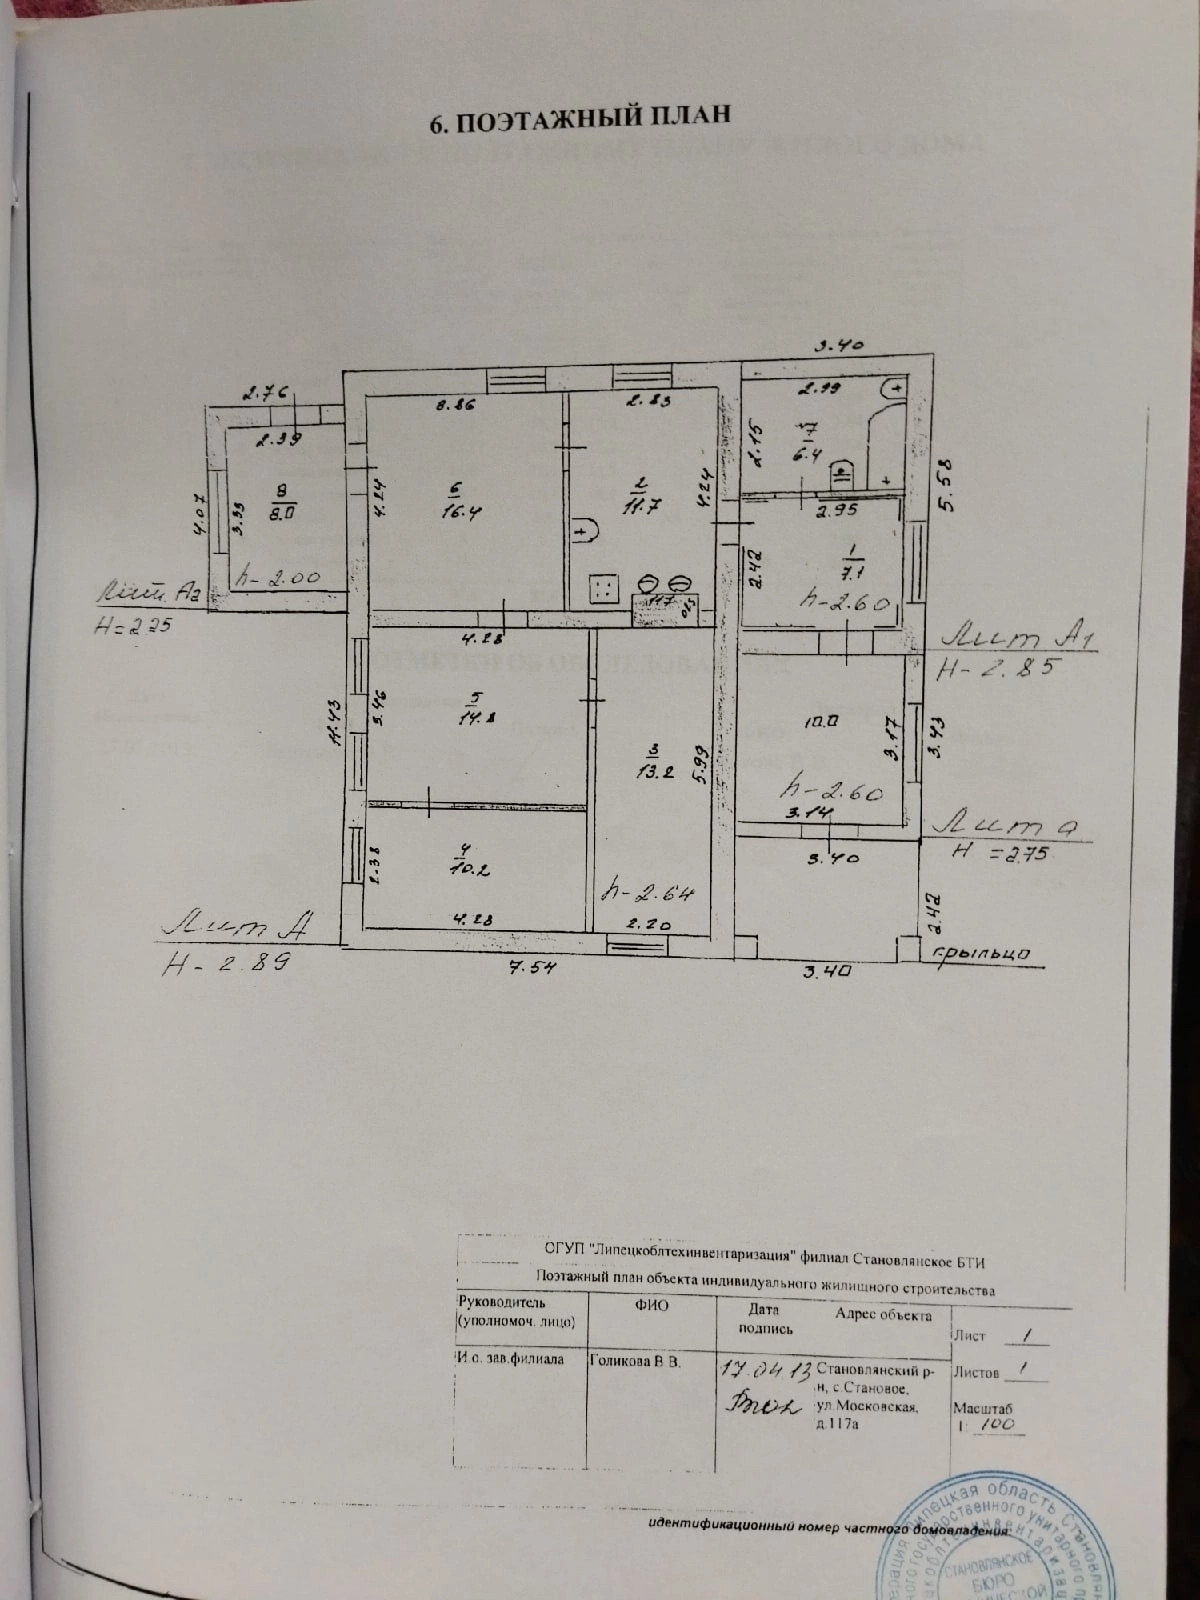 6. ПОЭТАЖНЫЙ ПЛАН
3.40
2.76
2.39
3.86
2.83
2.99
2.15
7
6.4
5.58
4.07
3.33
8
8.0
4.24
6
16.4
2
11.7
4.24
2.95
2.42
1
7.1
h-2.00
h-2.60
Лит А2
H=2.25
4.28
Лит А1
H-2.85
11.43
3.46
5
14.8
3
13.2
5.99
10.0
3.17
3.43
h-2.60
3.14
Лит а
H =2.75
3.40
2.38
4
10.2
h-2.64
2.42
Лит А
H-2.89
4.28
2.20
7.54
3.40
крыльцо
ОГУП "Липецкоблтехинвентаризация" филиал Становлянское БТИ
Поэтажный план объекта индивидуального жилищного строительства
Руководитель (уполномоч. лицо)
ФИО
Дата подпись
Адрес объекта
Лист 1
И.о. зав.филиала
Голикова В.В.
17.04.13
Становлянский р-
н, с.Становое,
ул.Московская,
д.117а
Листов 1
Масштаб
1: 100
идентификационный номер частного домовладения:
СТАНОВЛЯНСКОЕ
БЮРО